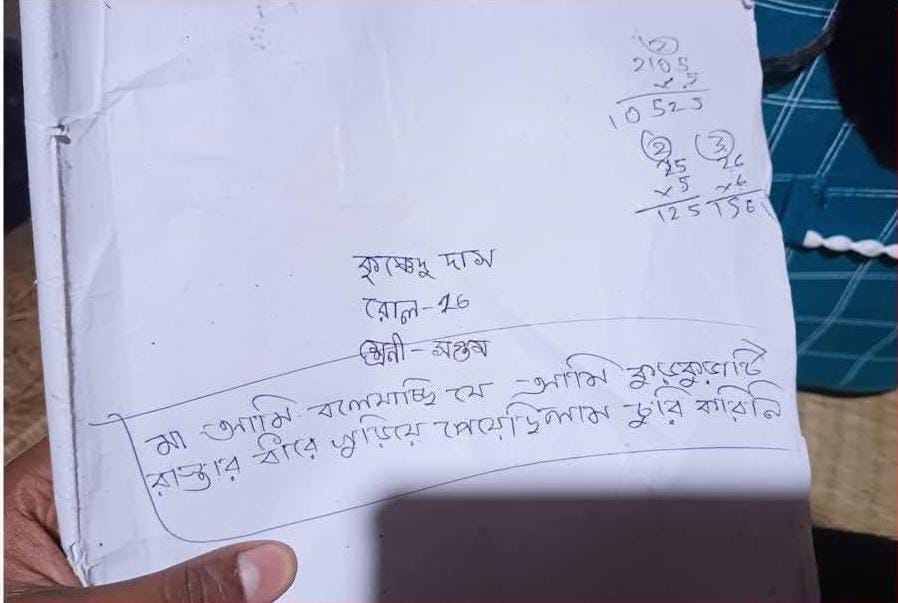 2
2105
×5
10525
2 3
25 26
×5 ×6
125 156
কৃষ্ণেন্দু দাস
রোল-26
শ্রেনী-সপ্তম
মা আমি বলেযাচ্ছি যে আমি কুড়কুড়াটি
রাস্তার ধীরে খুড়িয়ে পেয়েছিলাম চুরি করিনি